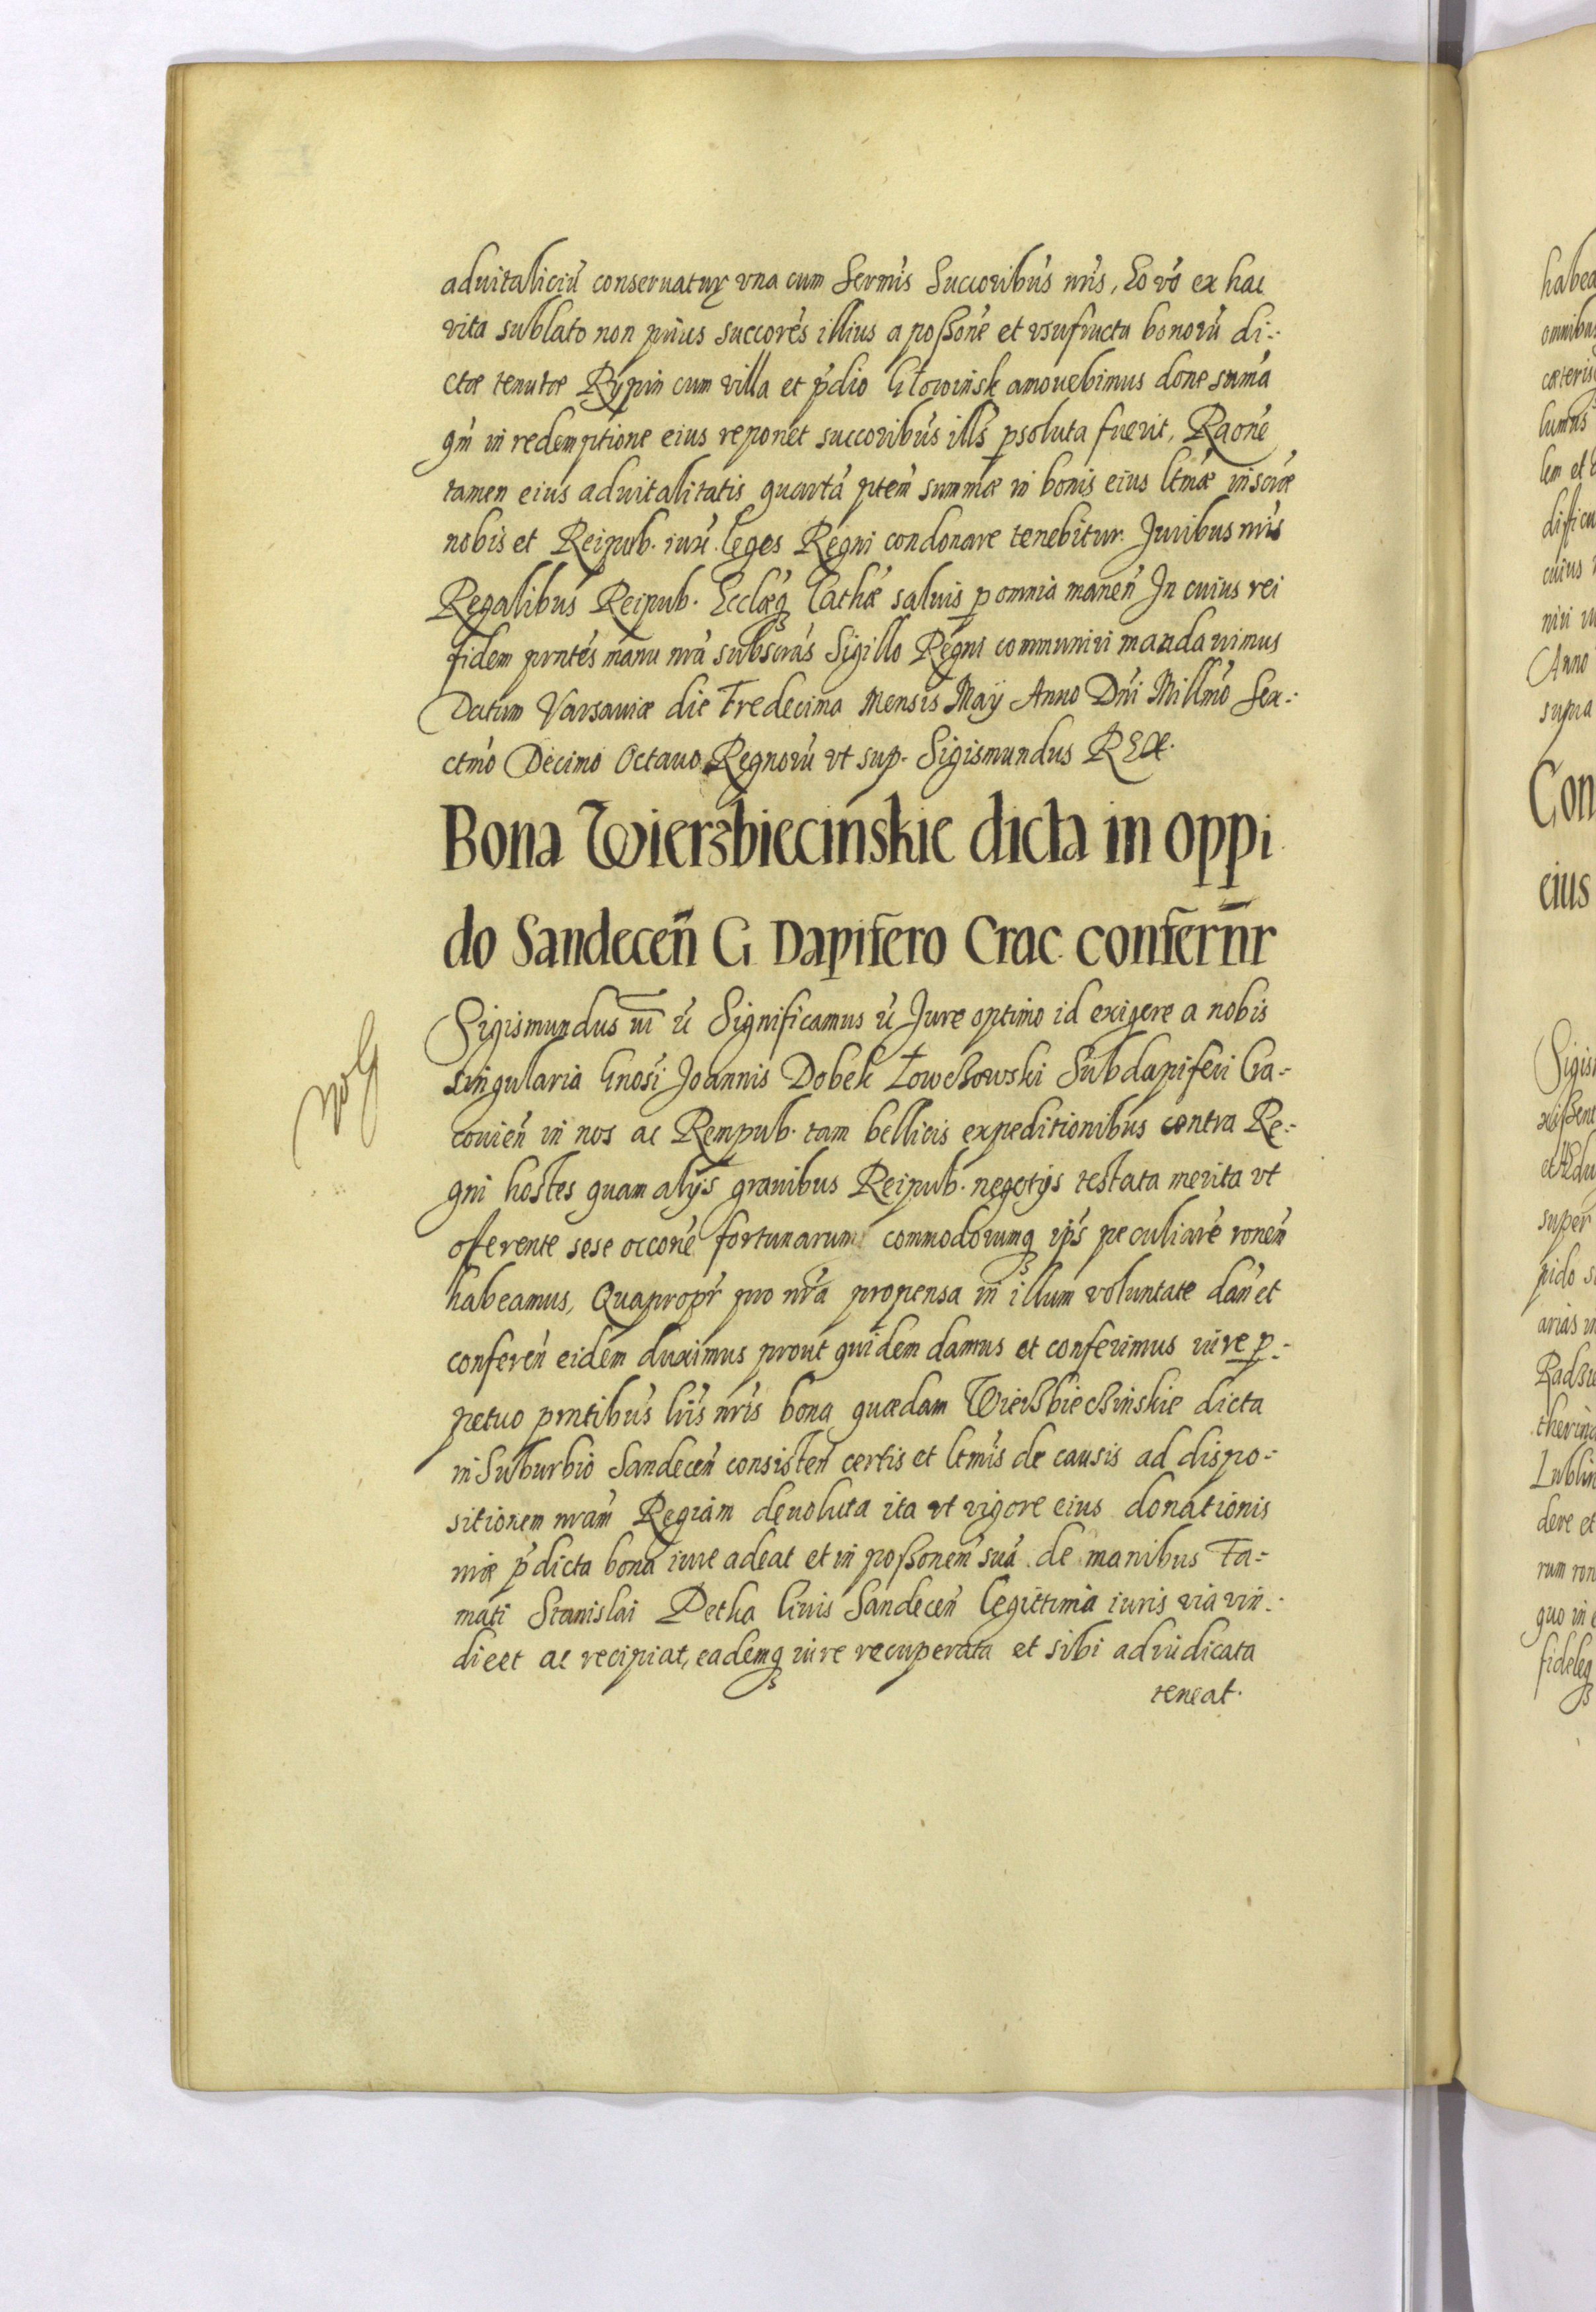 aduitaliciū conseruatur vna cum Sermis Succoribus nris, Eo vo ex hac
vita sublato non prius succores illius a possone et vsufructu bonorū di-
ctæ tenutæ Rypin cum villa et pdio Głowińsk amouebimus done suma
qm in redemptione eius reponet succoribus ills psoluta fuerit, Raone
tamen eius aduitalitatis quartā ptem summæ in bonis eius ltmæ inscræ
nobis et Reipub. iux. leges Regni condonare tenebitur. Juribus nris
Regalibus Reipub. Ecclæq Cathæ saluis p omnia manen̄ In cuius rei
fidem prntes manu nra subscras Sigillo Regni communiri mandauimus
Datum Varsauiæ die Tredecima Mensis Maÿ Anno Dni Millmo Sex-
ctmo Decimo Octauo Regnorū vt sup. Sigismundus REX.
Bona Wierzbiecinskie dicta in oppi
do Sandecen̄ G Dapifero Crac. confern̄r
Sigismundus III &c Significamus &c Jure optimo id exigere a nobis
singularia Gnosi Joannis Dobek Łowczowski Subdapiferi Cra-
couien̄ in nos ac Rempub. tam bellicis expeditionibus contra Re-
gni hostes quam alijs grauibus Reipub. negotijs testata merita vt
oferente sese occone fortunarum commodorumq ips peculiare ronem
habeamus, Quapropr pro nra propensa in illum voluntate dan̄ et
conferen̄ eidem duximus prout quidem damus et conferimus iure p-
petuo prntibus lris nris bona quædam Wierzbieczinskie dicta
in Suburbio Sandecen̄ consisten̄ certis et ltmis de causis ad dispo-
sitionem nram Regiam deuoluta ita vt vigore eius donationis
nræ pdicta bona iure adeat et in possonem suā de manibus Fa-
mati Stanislai Petka Ciuis Sandecen̄ legittima iuris via vin-
dicet ac recipiat, eademq iure recuperata et sibi adiudicata
teneat.